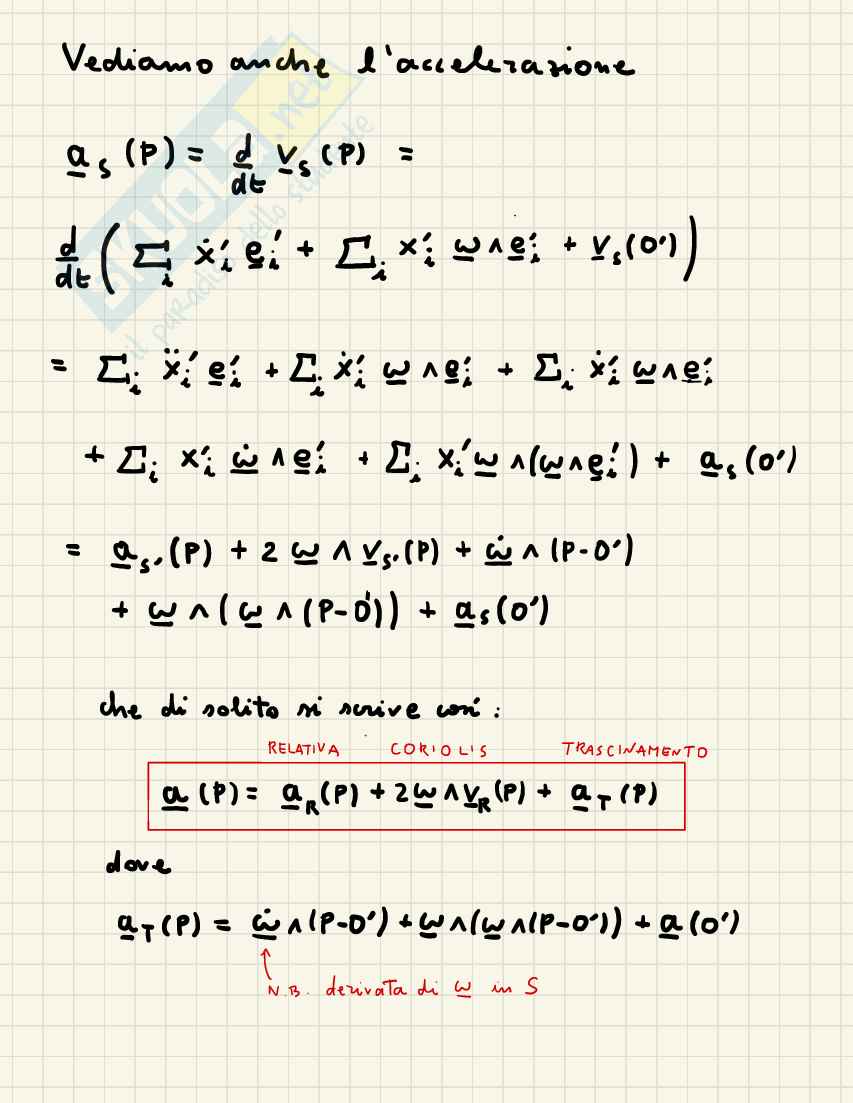 Vediamo anche l'accelerazione
a̲ₛ(P) = d/dt v̲ₛ(P) =
d/dt ( Σᵢ ẋ'ᵢ e̲'ᵢ + Σᵢ x'ᵢ ω̲ ∧ e̲'ᵢ + v̲ₛ(O') )
= Σᵢ ẍ'ᵢ e̲'ᵢ + Σᵢ ẋ'ᵢ ω̲ ∧ e̲'ᵢ + Σᵢ ẋ'ᵢ ω̲ ∧ e̲'ᵢ
+ Σᵢ x'ᵢ ω̲̇ ∧ e̲'ᵢ + Σᵢ x'ᵢ ω̲ ∧ (ω̲ ∧ e̲'ᵢ) + a̲ₛ(O')
= a̲ₛ'(P) + 2 ω̲ ∧ v̲ₛ'(P) + ω̲̇ ∧ (P-O')
+ ω̲ ∧ (ω̲ ∧ (P-O')) + a̲ₛ(O')
che di solito si scrive così:
RELATIVA CORIOLIS TRASCINAMENTO
a̲(P) = a̲_R(P) + 2ω̲ ∧ v̲_R(P) + a̲_T(P)
dove
a̲_T(P) = ω̲̇ ∧ (P-O') + ω̲ ∧ (ω̲ ∧ (P-O')) + a̲(O')
N.B. derivata di ω̲ in S
SKUOLA.net
il paradiso dello studente